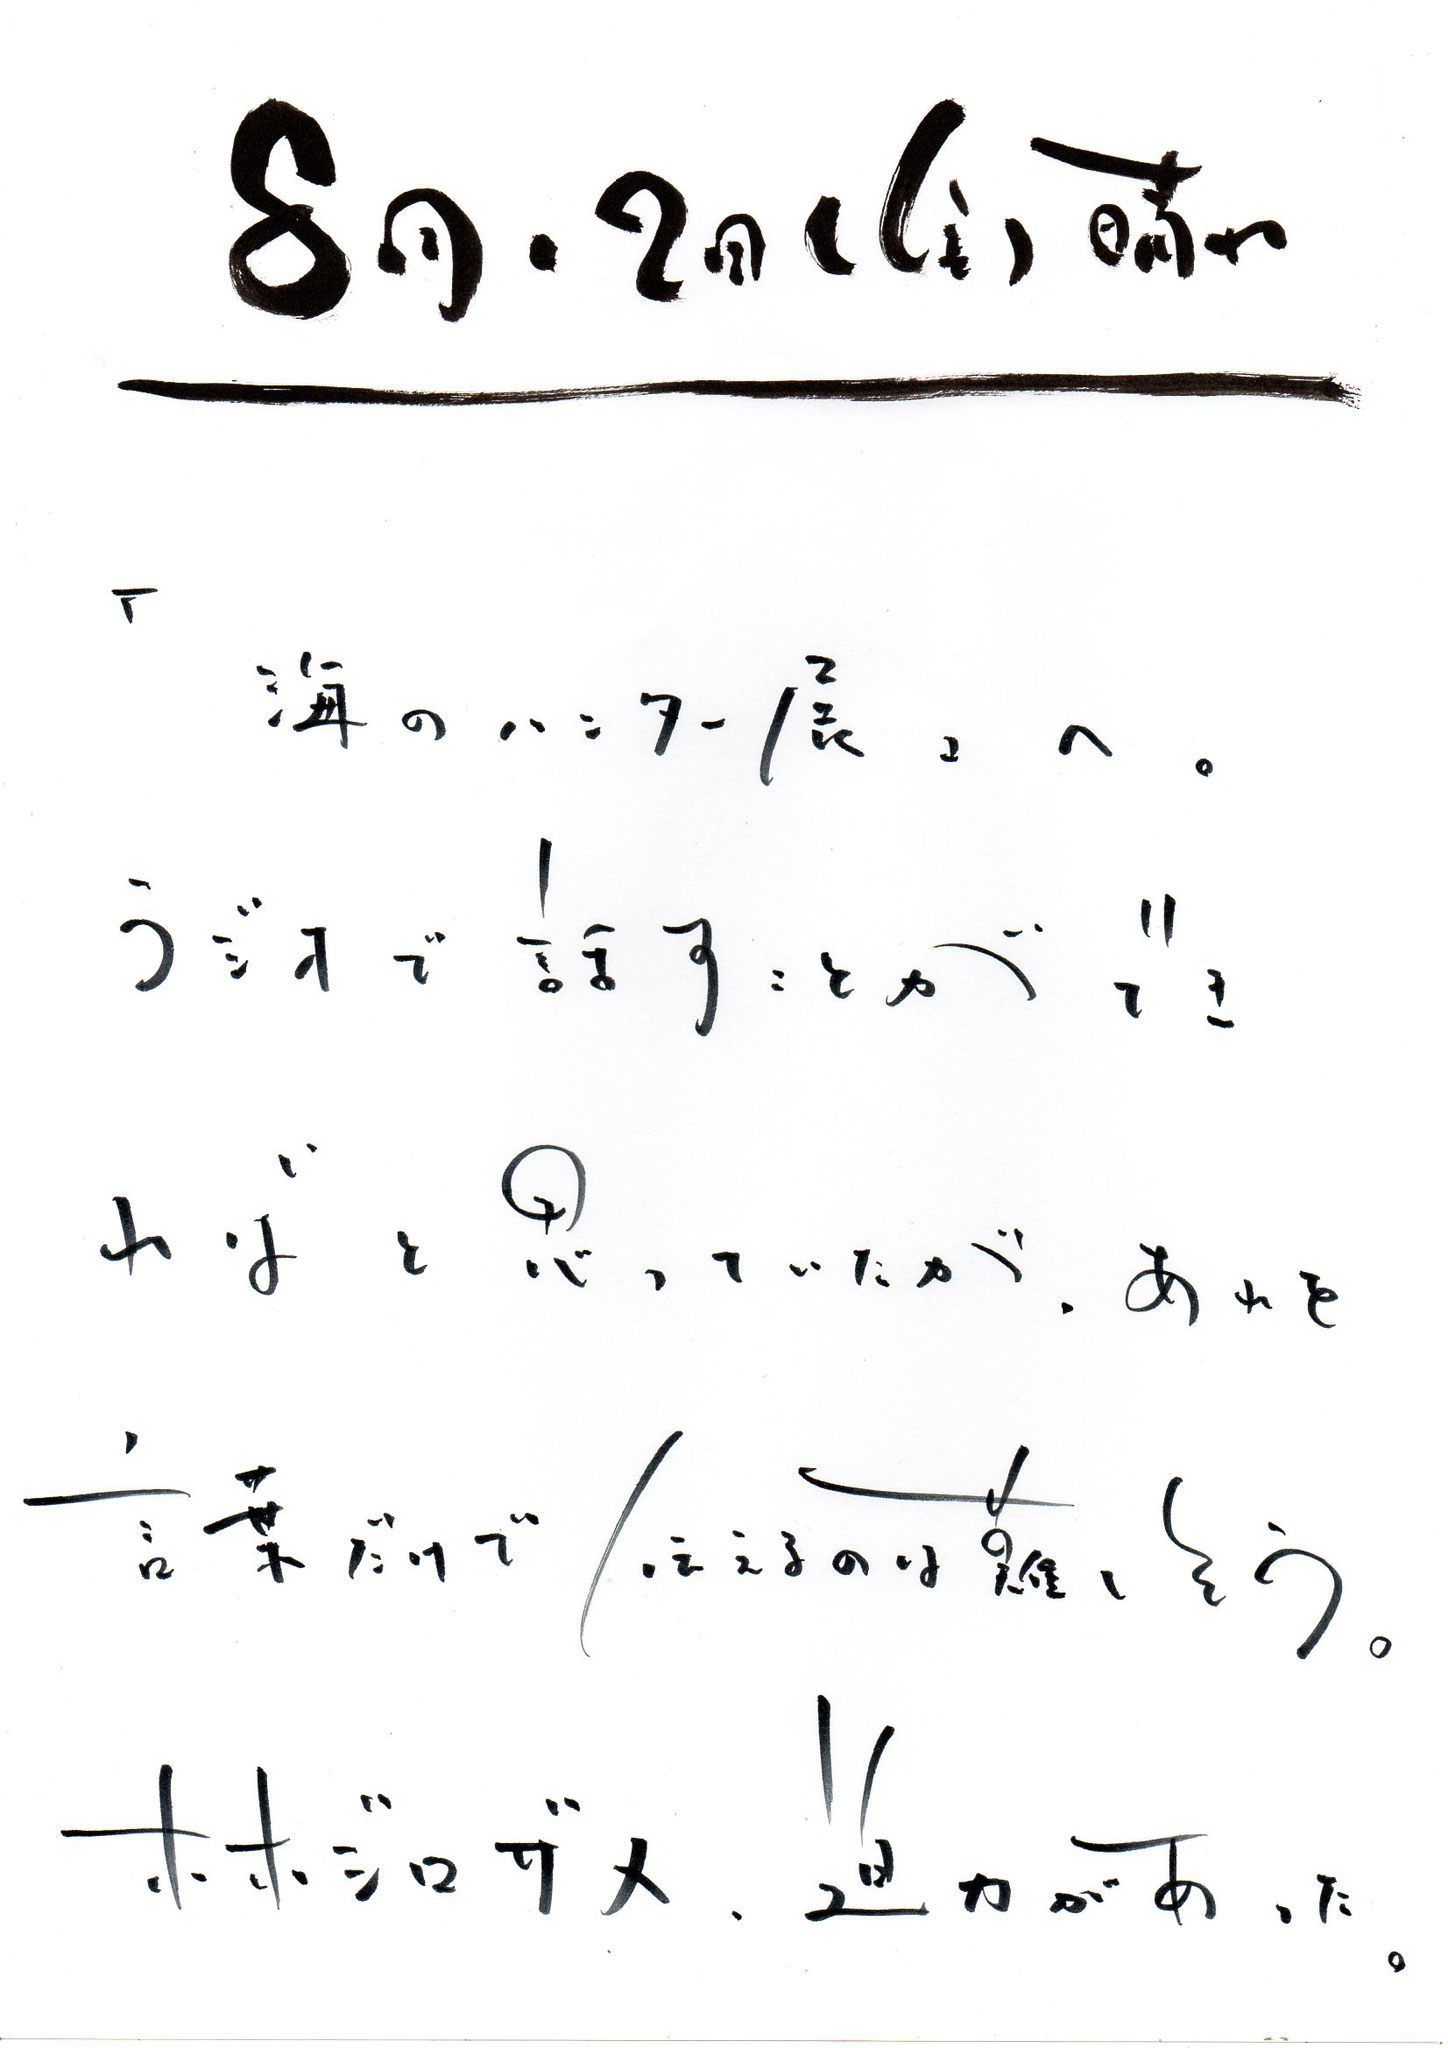 8月.2日(金)晴れ
「海のハンター展」へ。
ラジオで話すことができ
ればと思っていたが、あれを
言葉だけで伝えるのは難しそう。
ホホジロザメ、迫力があった。